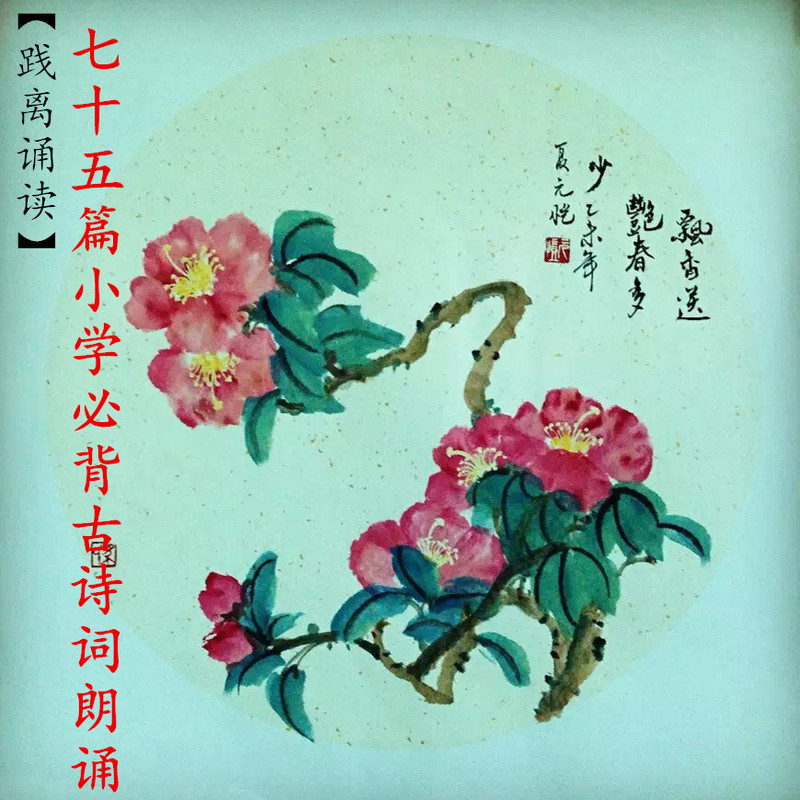 【践离诵读】
七十五篇小学必背古诗词朗诵
飄香送
艷春多
乙未年
夏元